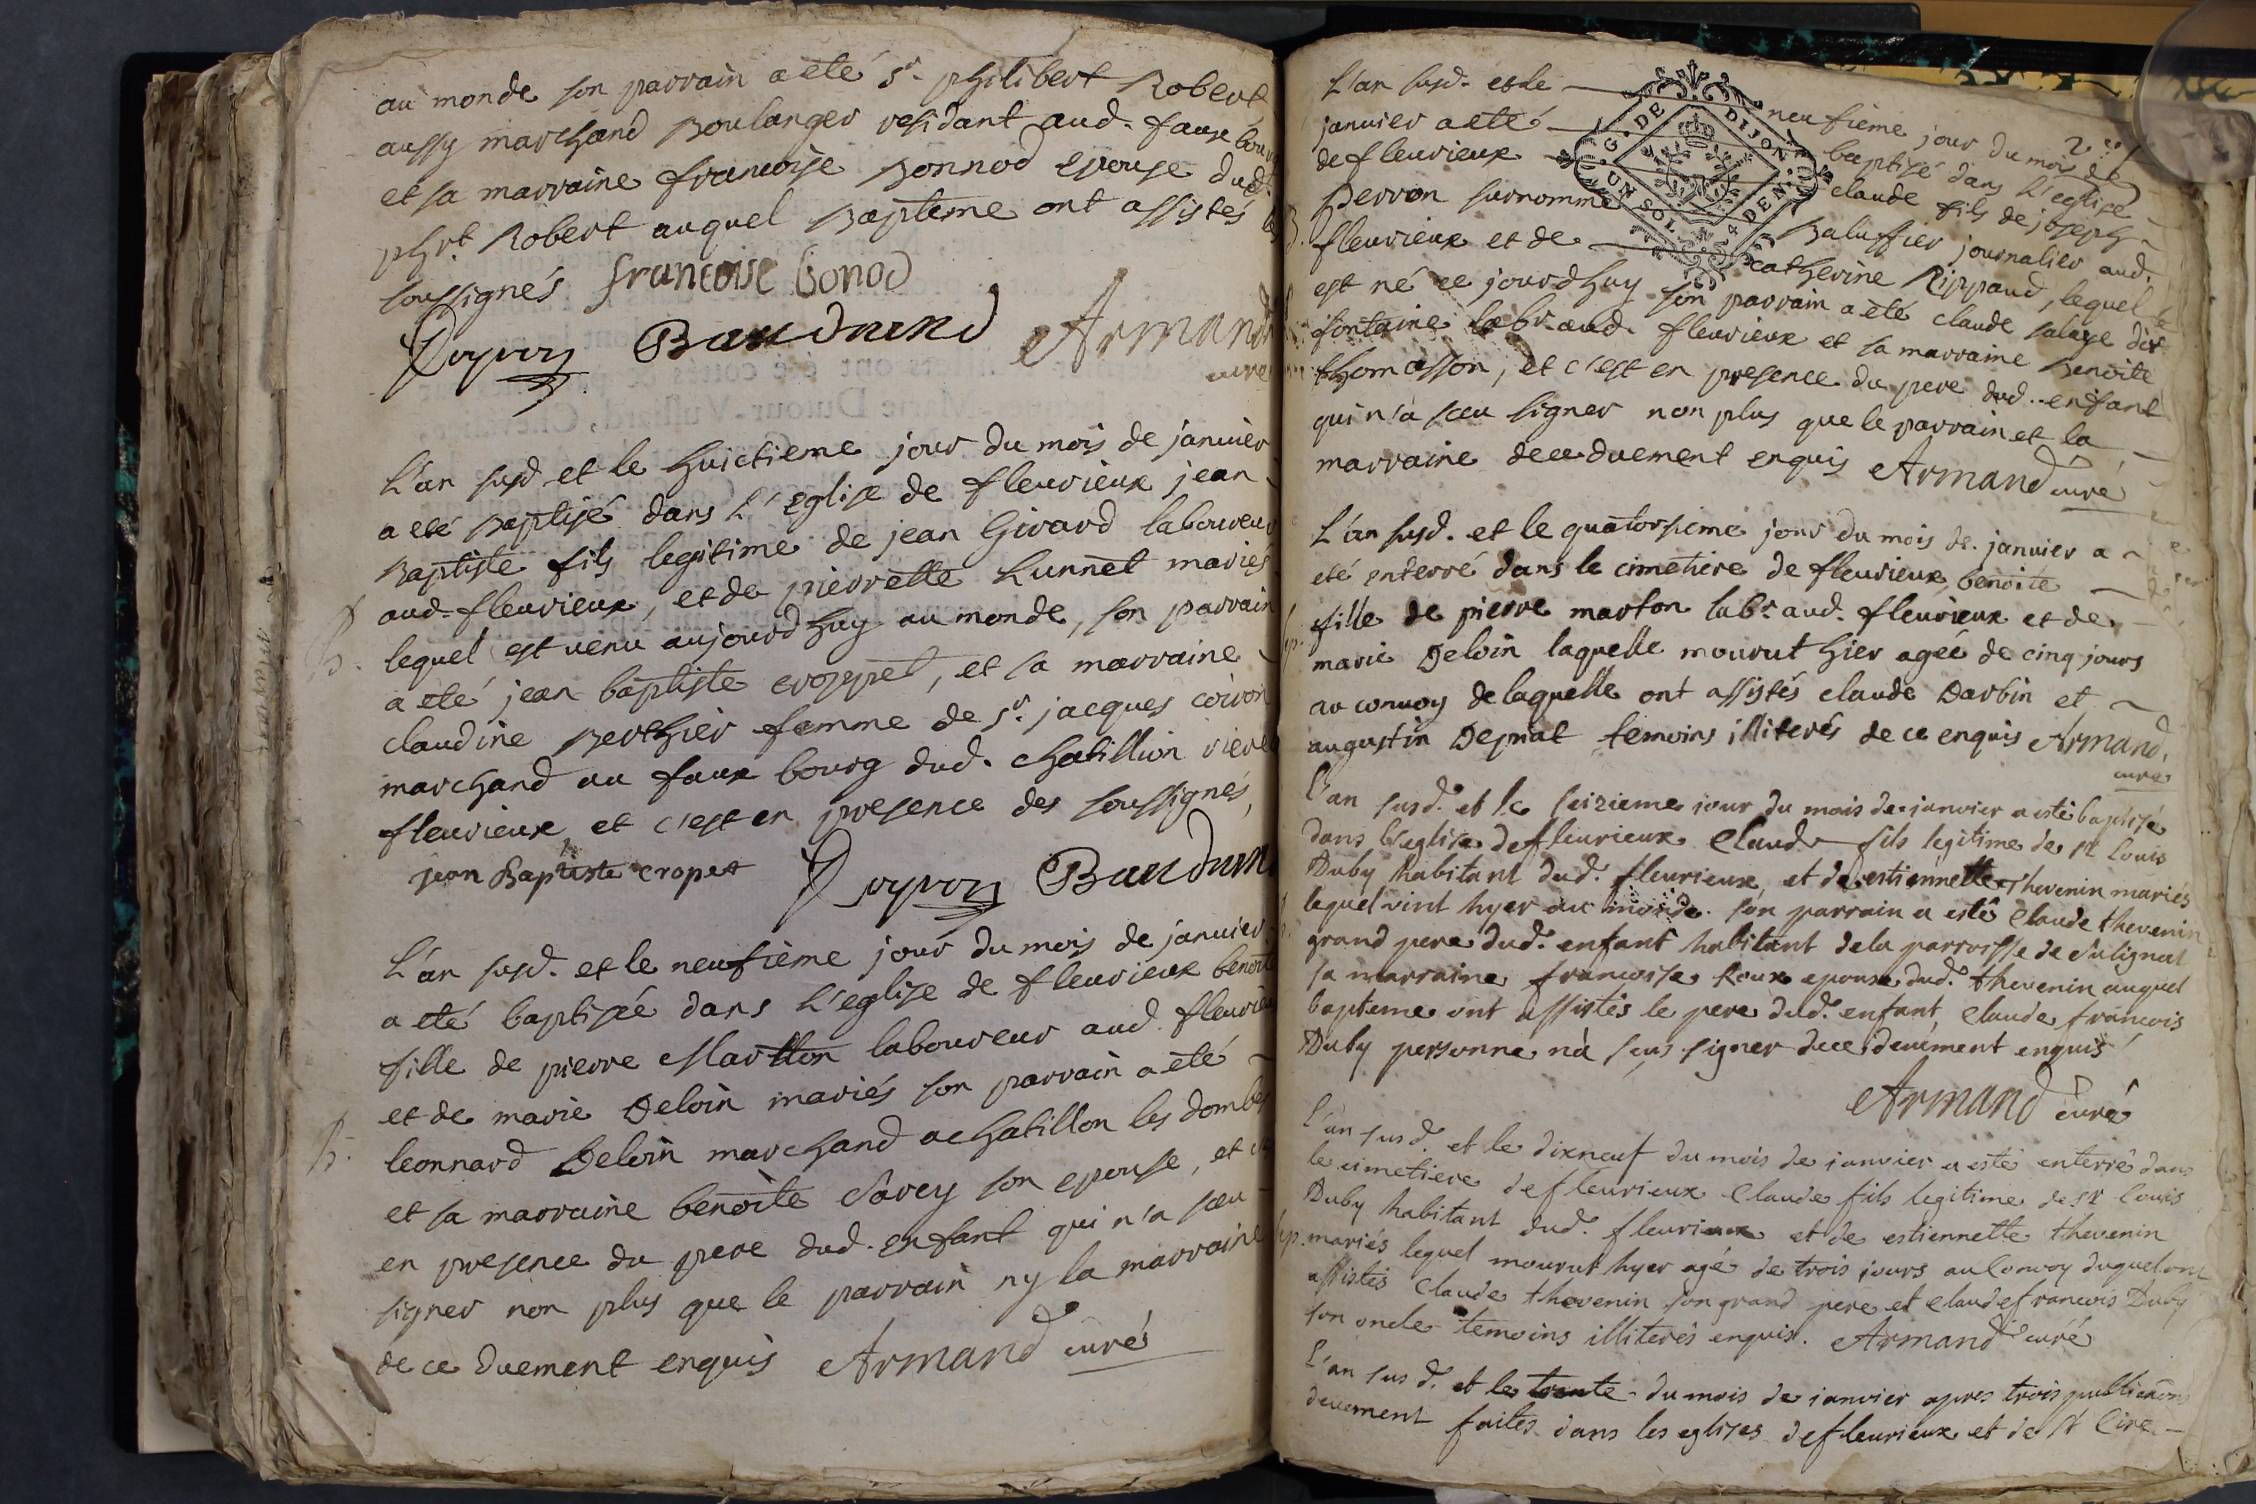 au monde son parrain a eté Sr. philibert Robert
aussy marchand Boulanger residant aud. faux bourg
et sa marraine francoise Bonnod epouse dud.
phrt Robert auquel Bapteme ont assistés les
soussignés francoise bonod
Baudrand Armand
curé
L'an susd. et le huictieme jour du mois de janvier
a eté Baptisé dans L'eglise de fleurieux jean
Baptiste fils legitime de jean Girard laboureur
aud. fleurieux, et de pierrette Lunnet mariés
lequel est venu aujourdhuy au monde, son parrain
B.
a eté jean baptiste croppet, et sa marraine
claudine Berthier femme de Sr. jacques coiron
marchand au faux bourg dud. chatillion riere
fleurieux et c'est en presence des soussignés,
jean Baptiste cropet Baudran
L'an susd. et le neufième jour du mois de janvier
a eté baptisée dans L'eglise de fleurieux benoite
fille de pierre Martton laboureur aud. fleurieux
et de marie Deloin mariés son parrain a eté
B.
leonnard Deloin marchand a chatillon les dombes
et sa marraine benoite Savey son epouse, et
en presence du pere dud. enfant qui n'a sceu
signer non plus que le parrain ny la marraine
de ce duement enquis Armand curé
G. DE DIJON
UN SOL 4 DEN.
L'an susd. et le neufieme jour du mois de
janvier a eté baptisé dans L'eglise
de fleurieux claude fils de joseph
perron surnommé Baluffier journalier aud.
fleurieux et de catherine Rippaud, lequel
est né ce jourdhuy son parrain a eté claude salaye dit
fontaine labr. aud. fleurieux et sa marraine Benoite
thomasson, et c'est en presence du pere dud. enfant
qui n'a sceu signer non plus que le parrain et la
marraine de ce duement enquis Armand curé
L'an susd. et le quatorsieme jour du mois de janvier a
eté enterré dans le cimetiere de fleurieux benoite
fille de pierre marton labr. aud. fleurieux et de
marie Deloin laquelle mourut hier ageé de cinq jours
au convoy de laquelle ont assistés claude Darbin et
augustin Depriat temoins illiterés de ce enquis Armand
curé
L'an susd. et le seizieme jour du mois de janvier a esté baptisé
dans l'eglise de fleurieux Claude fils legitime de sr Louis
Duby habitant dud. fleurieux, et de estiennette thevenin mariés
lequel vint hyer au monde. son parrain a esté Claude thevenin
grand pere dud. enfant habitant de la parroisse de Sulignat
sa marraine francoise Roux epouse dud. thevenin auquel
bapteme ont assistés le pere dud. enfant, Claude francois
Duby personne n'a sçus signer de ce deuëment enquis
Armand curé
L'an susd. et le dixneuf du mois de janvier a esté enterré dans
le cimetiere de fleurieux Claude fils legitime de sr Louis
Duby habitant dud. fleurieux et de estiennette thevenin
sep. mariés lequel mourut hyer agé de trois jours au Convoy duquel ont
assistés Claude thevenin son grand pere et Claude francois Duby
son oncle temoins illiterés enquis. Armand curé
L'an susd. et le trente du mois de janvier apres trois publications
deuement faites dans les eglises de fleurieux et de St Cire